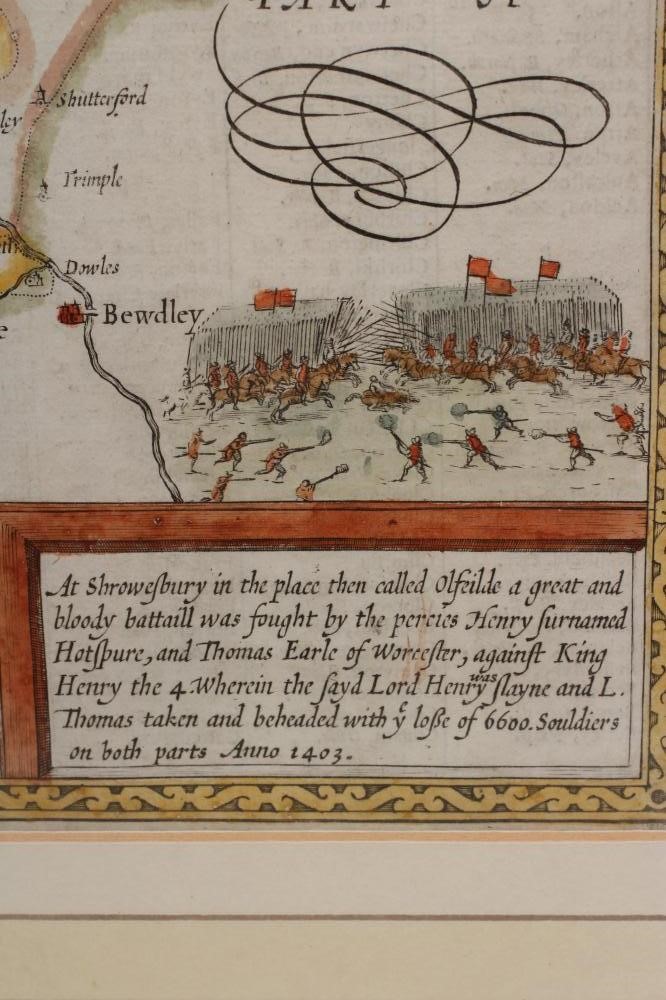 PART OF
Shutterford
ley
Trimple
Dowles
Bewdley
At Shrowesbury in the place then called Olfeilde a great and
bloody battaill was fought by the percies Henry surnamed
Hotspure, and Thomas Earle of Worcester, against King
Henry the 4. Wherein the sayd Lord Henry was slayne and L.
Thomas taken and beheaded with yͤ losse of 6600. Souldiers
on both parts Anno 1403.